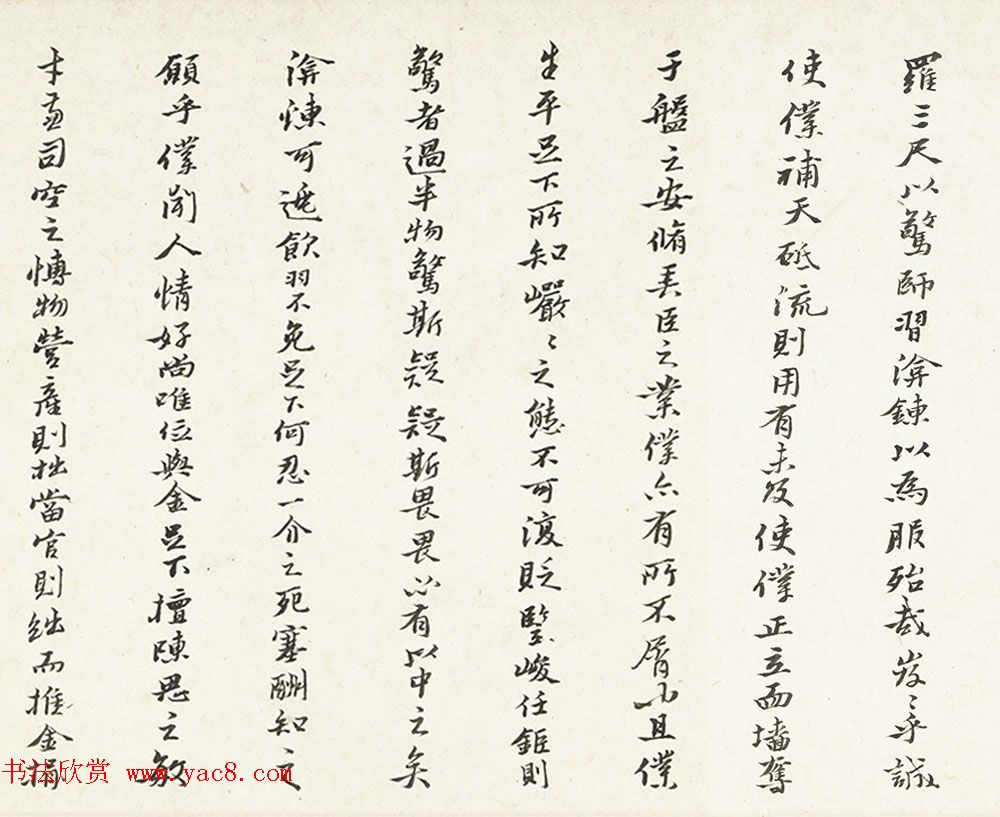 羅三尺以驚師習渰鍊以為服殆哉岌〻乎誠
使僕補天砥流則用有未及使僕正立而墻奪
于盤之安脩臣之業僕亦有所不屑也且僕
生平足下所知巖〻之態不可復貶堅峻任鉅則
驚者過半物驚斯疑疑斯畏畏必有以中之矣
渰煉可逃飲羽不免足下何忍一介之死塞酬知之
願乎僕閱人情好尚唯位與金足下擅陳思之敏
才司空之博物營產則拙當官則絀而推金揖
书法欣赏 www.yac8.com